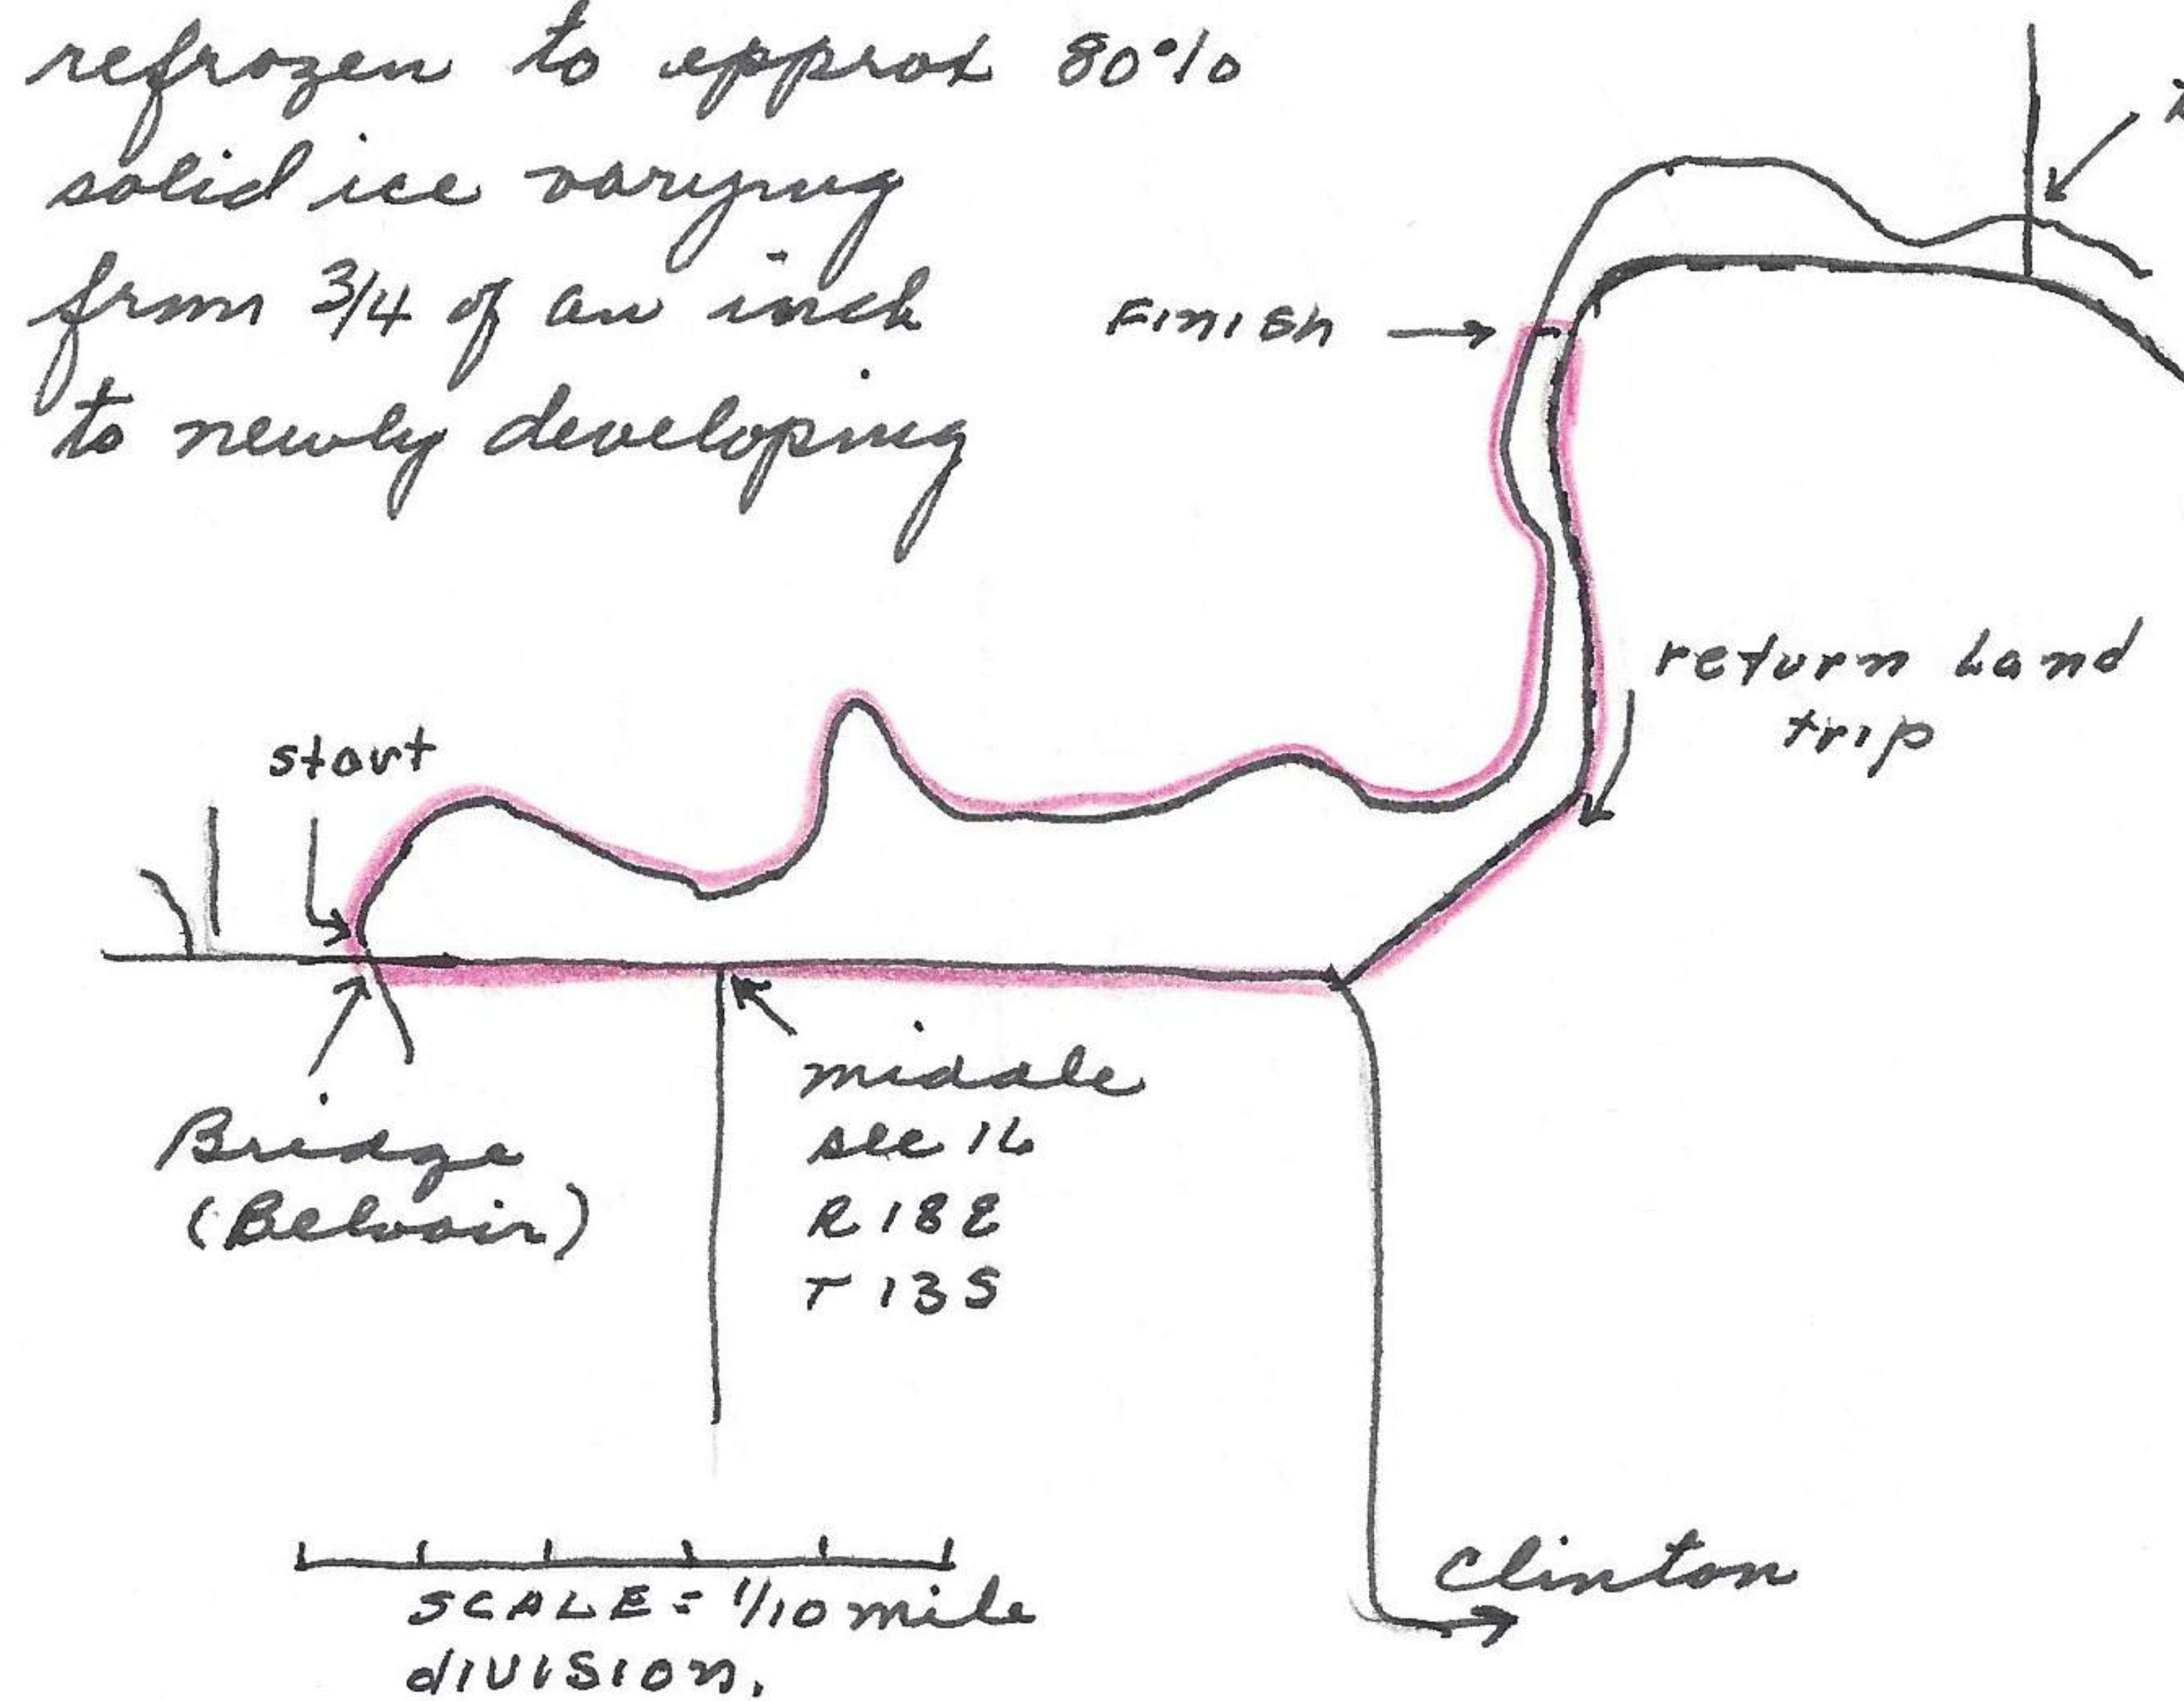 refrozen to epprox 80%
solid ice varying
from 3/4 of an inch
to newly developing
Finish
return Land
trip
start
Bridge
(Belvoir)
middle
sec 16
R 18E
T 13S
SCALE = 1/10 mile
division.
Clinton